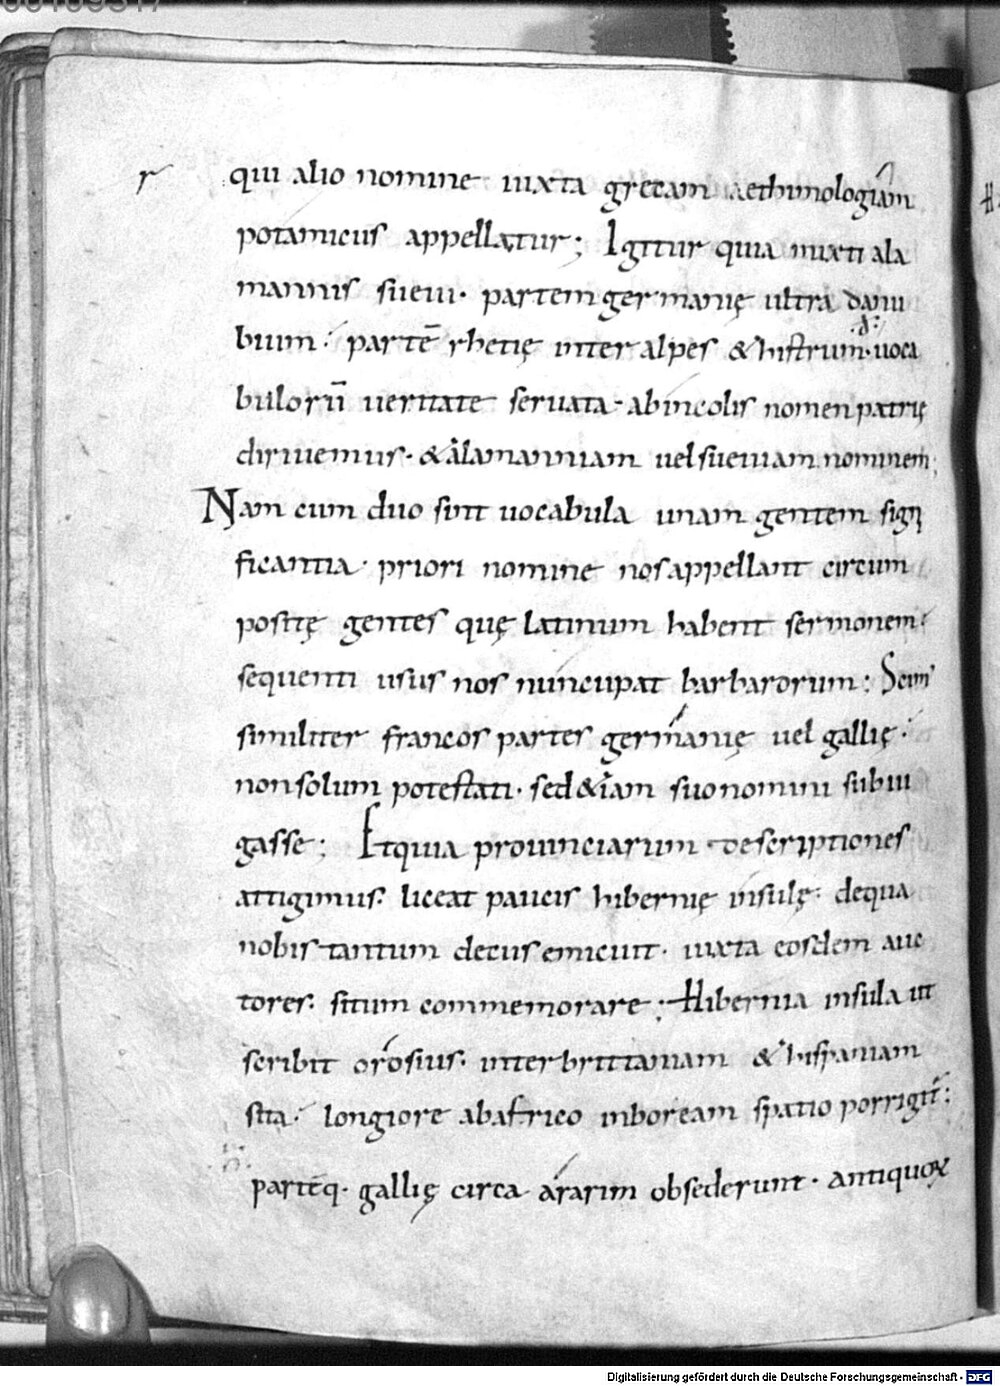 r qui alio nomine iuxta grecam aethimologiam
potamicus appellatur; Igitur quia mixti ala
mannis sueui· partem germanię ultra danu
bium· partē rhetię inter alpes & histrum· uoca
·d·
bulorū ueritate seruata· ab incolis nomen patrię
diriuemus· & alamanniam uel sueuiam nominem;
Nam cum duo sint uocabula unam gentem signi
ficantia· priori nomine nos appellant circum
positę gentes quę latinum habent sermonem·
sequenti usus nos nuncupat barbarorum; Scim'
similiter francos partes germanię uel gallię·
non solum potestati· sed & iam suo nomini subiu
gasse; Et quia prouinciarum descriptiones
attigimus· liceat paucis hibernię insulę· de qua
nobis tantum decus emicuit· iuxta eosdem auc
tores· situm commemorare; Hibernia insula ut
scribit orosius· inter brittaniam & hispaniam
sita· longiore ab africo in boream spatio porrigit̄;
partēq· gallię circa ararim obsederunt· antiquoꝝ
Digitalisierung gefördert durch die Deutsche Forschungsgemeinschaft - DFG